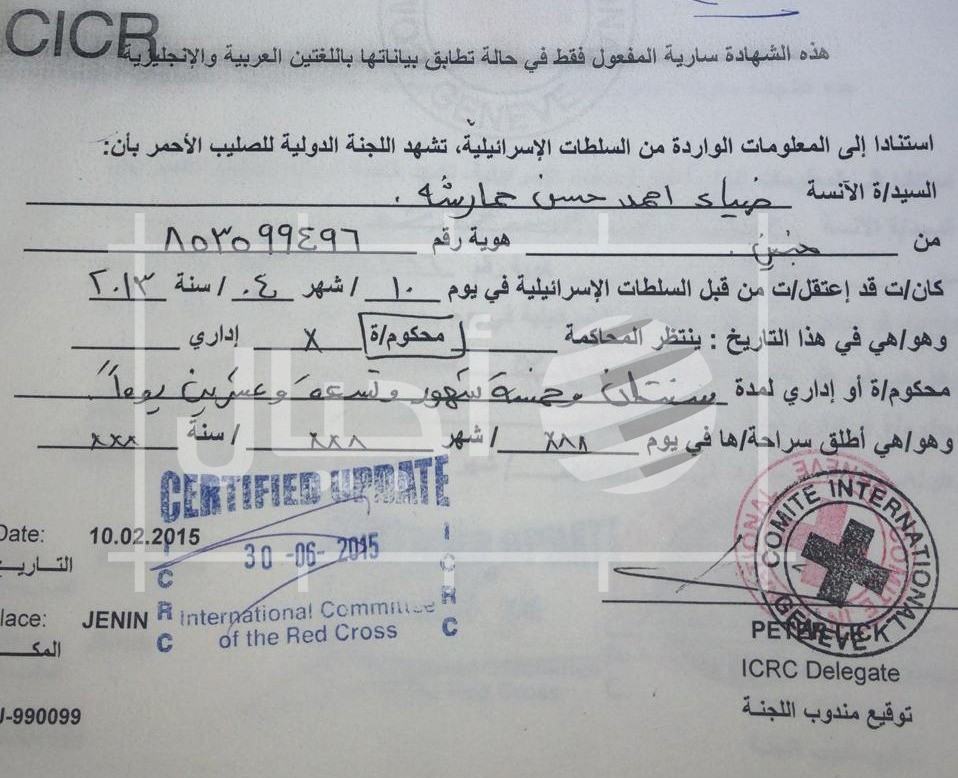 CICR
هذه الشهادة سارية المفعول فقط في حالة تطابق بياناتها باللغتين العربية والإنجليزية
استنادا إلى المعلومات الواردة من السلطات الإسرائيلية، تشهد اللجنة الدولية للصليب الأحمر بأن:
السيد/ة الآنسة ضياء احمد حسن عمارشه .
من جنين . هوية رقم ٨٥٣٥٩٩٤٩٦
كان/ت قد إعتقل/ت من قبل السلطات الإسرائيلية في يوم ١٠ / شهر ٠٤ / سنة ٢٠١٣
وهو/هي في هذا التاريخ : ينتظر المحاكمة محكوم/ة X إداري
محكوم/ة أو إداري لمدة سنتان وخمسة شهور وتسعة وعشرين يوماً
وهو/هي أطلق سراحة/ها في يوم xxx / شهر xxx / سنة xxx
أحوال
CERTIFIED UPDATE
30 -06- 2015
ICRC
ICRC
International Committee
of the Red Cross
Date: 10.02.2015
التاريخ
lace: JENIN
المكـ
J-990099
COMITE INTERNATIONAL
GENEVE
PETER LICK
ICRC Delegate
توقيع مندوب اللجنة